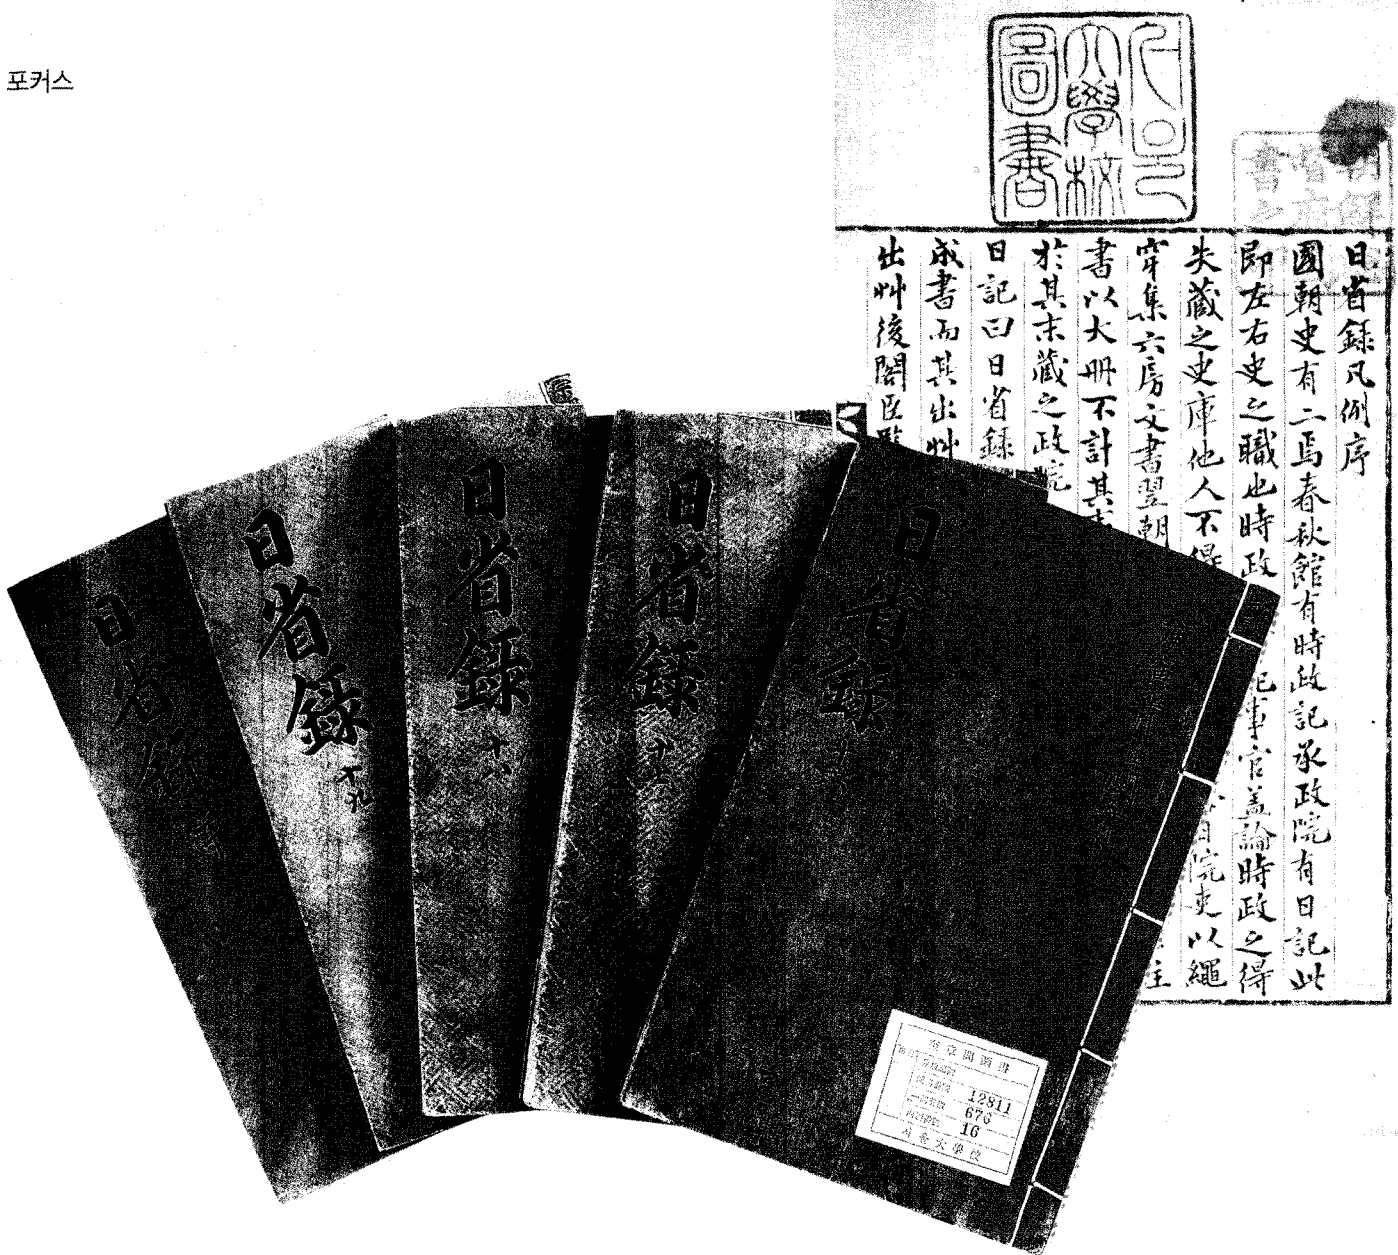 포커스
서울大學校圖書
日省錄凡例序
國朝史有二焉春秋館有時政記承政院有日記此
卽左右史之職也時政
記事官盖論時政之得
失藏之史庫他人不得
日院吏以繩
穿集六房文書翌朝
注
書以大冊不計其
於其末藏之政院
日記曰日省錄
成書而其出艸
出艸後閣臣
日省錄
日省錄
日省錄
十八
日省錄
日省錄
奎章閣圖書
12811
676
16
서울大學校